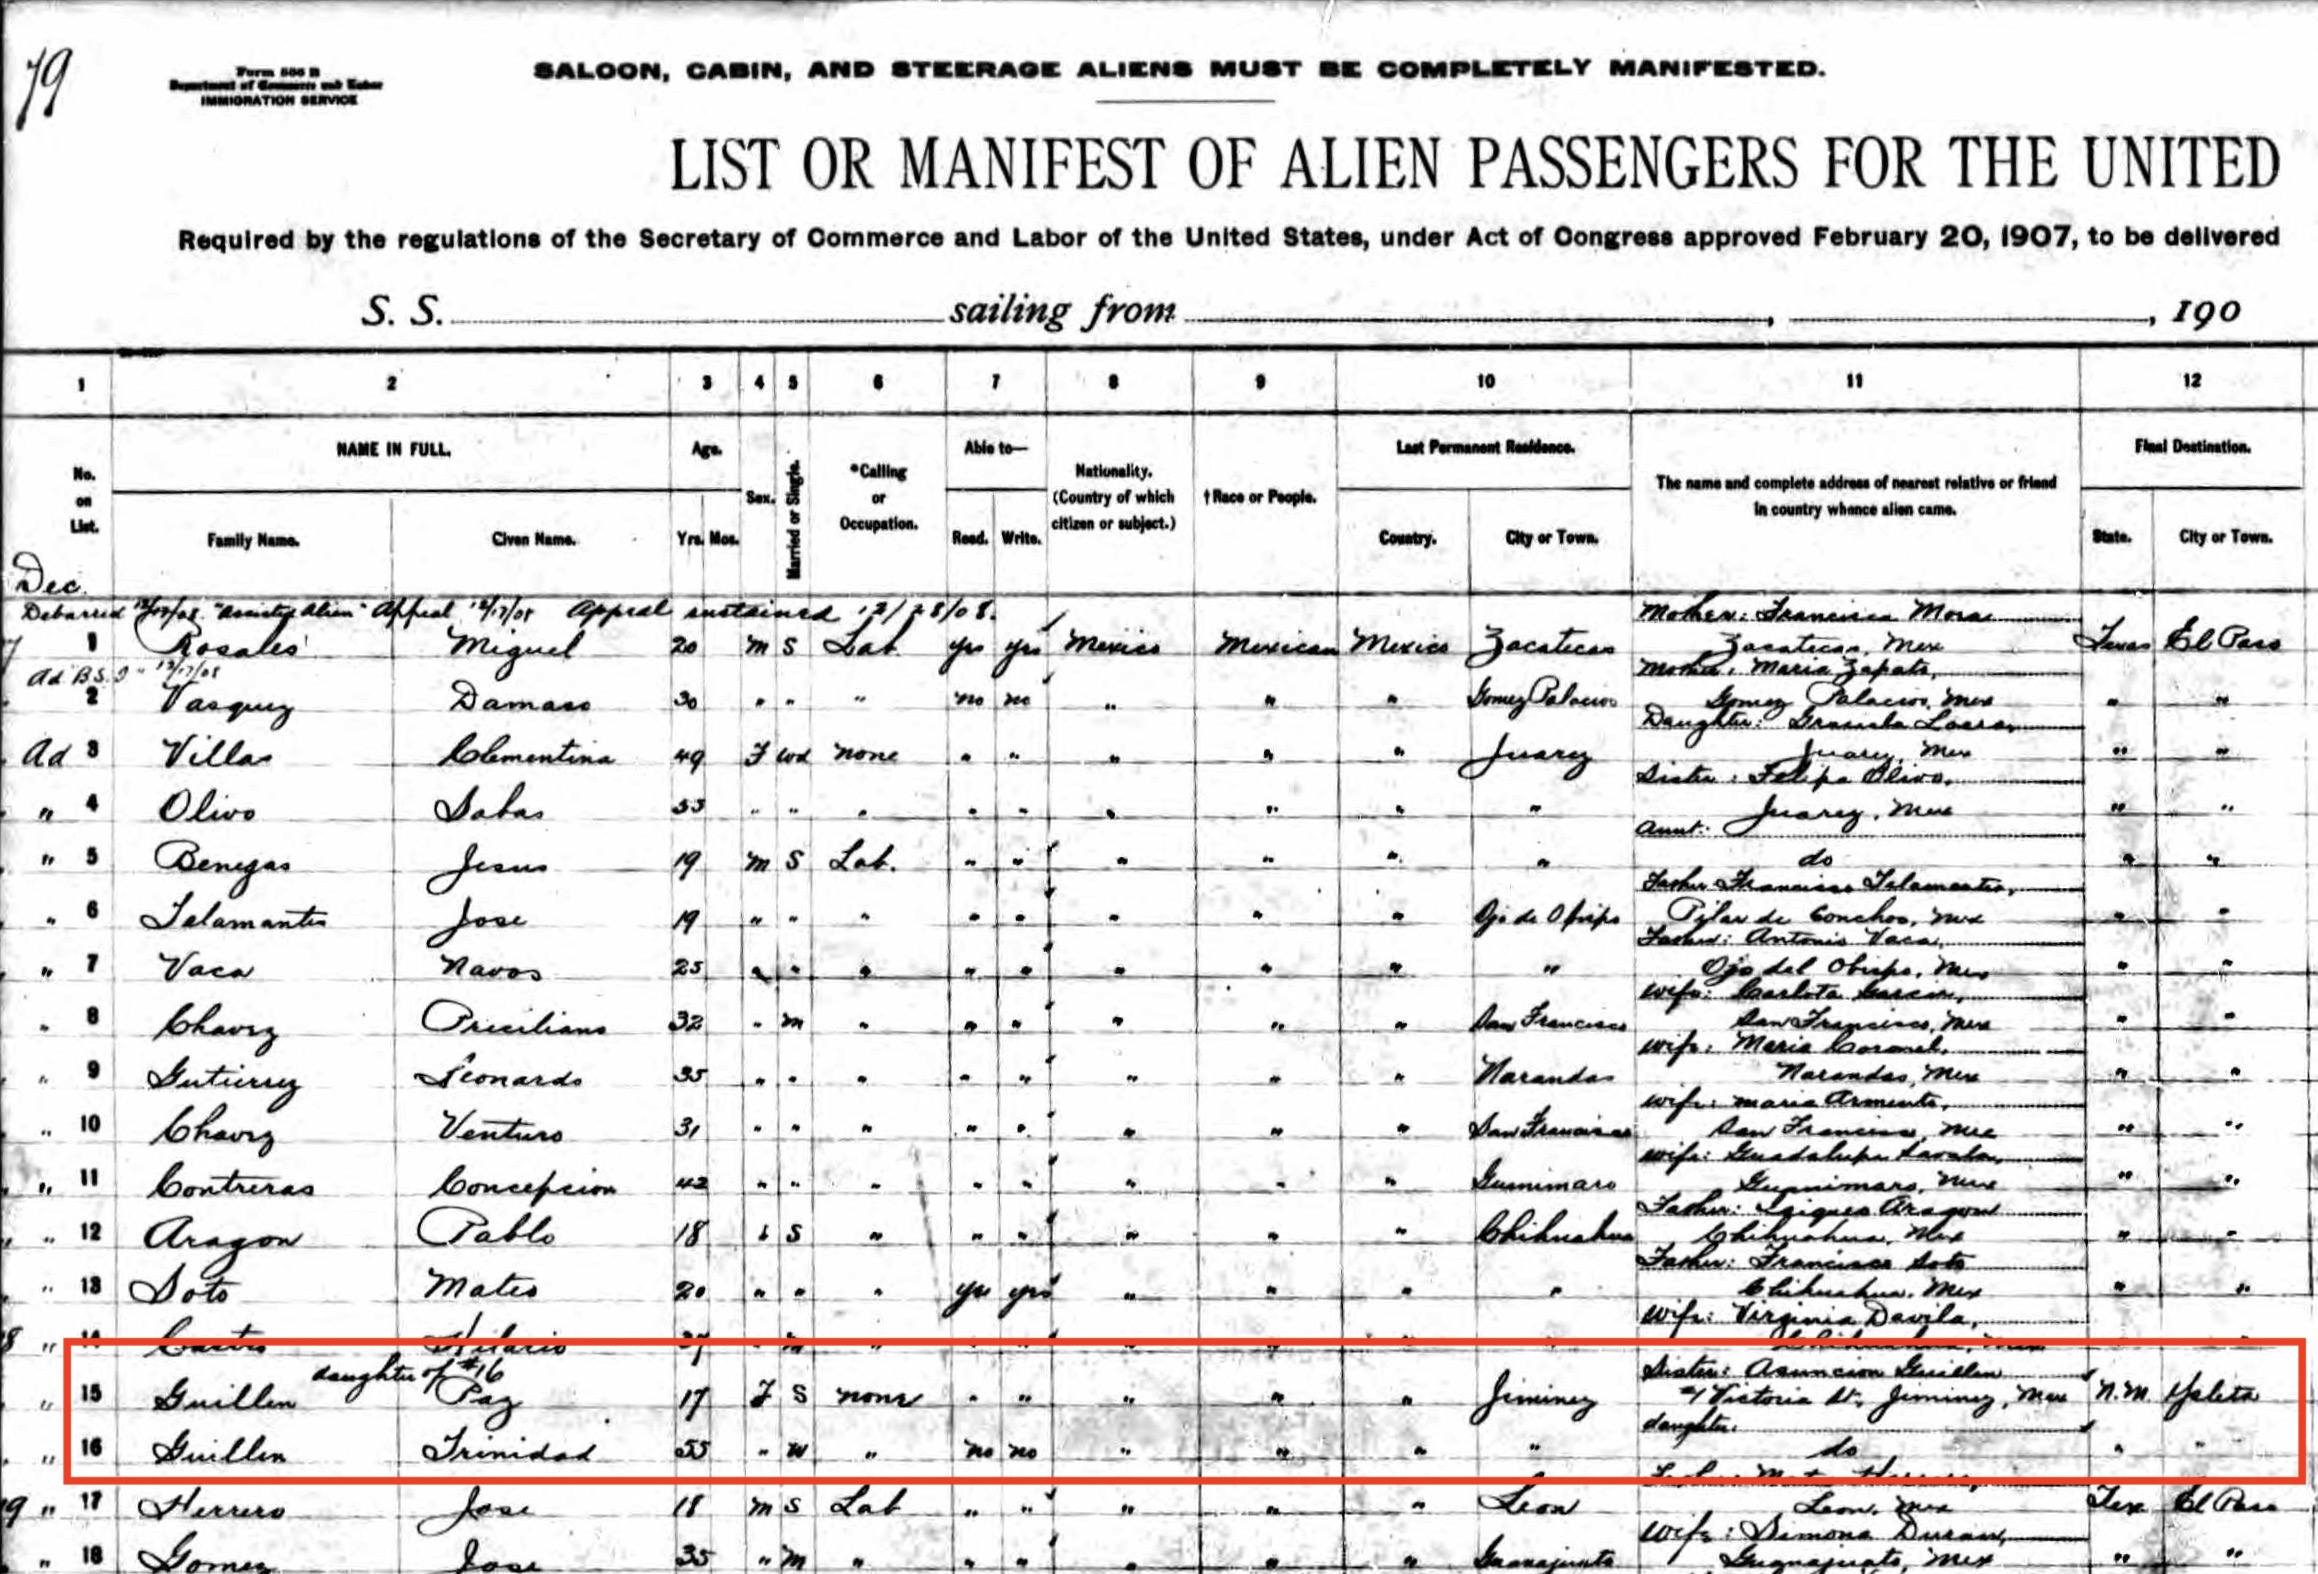 79
Form 500 B
Department of Commerce and Labor
IMMIGRATION SERVICE
SALOON, CABIN, AND STEERAGE ALIENS MUST BE COMPLETELY MANIFESTED.
LIST OR MANIFEST OF ALIEN PASSENGERS FOR THE UNITED
Required by the regulations of the Secretary of Commerce and Labor of the United States, under Act of Congress approved February 20, 1907, to be delivered
S. S. sailing from , , 190
1 2 3 4 5 6 7 8 9 10 11 12
No. on List. NAME IN FULL. Age. Sex. Married or Single. *Calling or Occupation. Able to— Nationality. (Country of which citizen or subject.) †Race or People. Last Permanent Residence. The name and complete address of nearest relative or friend in country whence alien came. Final Destination.
Family Name. Given Name. Yrs. Mos. Read. Write. Country. City or Town. State. City or Town.
Dec.
Debarred "Assisted Alien" Appeal 12/17/08 Appeal sustained 12/28/08. Mother: Francisca Mora
7 1 Rosales Miguel 20 m S Lab. yes yes Mexico Mexican Mexico Zacatecas Zacatecas, Mex Texas El Paso
Ad B.S.I. 12/17/08 Mother: Maria Zapata,
2 Vasquez Damaso 30 " " " no no " " " Gomez Palacios Gomez Palacios, Mex " "
Daughter:
Ad 3 Villas Clementina 49 F wd none " " " " " Juarez Juarez, Mex " "
Sister: Felipa Olivo,
" 4 Olivo Sabas 55 " " " " " " " " " Juarez, Mex " "
Aunt:
" 5 Benegas Jesus 19 m S Lab. " " " " " " do " "
Father Francisco Talamantes,
" 6 Talamantes Jose 19 " " " " " " " " Ojo de Obispo Pilar de Conchos, Mex " "
Father: Antonio Vaca,
" 7 Vaca Navos 25 " " " " " " " " " Ojo del Obispo, Mex " "
wife: Carlota Garcia,
" 8 Chavez Priciliano 32 " m " " " " " " San Francisco San Francisco, Mex " "
wife: Maria Coronel,
" 9 Gutierrez Leonardo 35 " " " " " " " " Narandas Narandas, Mex " "
wife: Maria Armenta,
" 10 Chavez Venturo 31 " " " " " " " " San Francisco San Francisco, Mex " "
wife: Guadalupe Zavala,
" 11 Contreras Concepcion 42 " " " " " " " " Guimimaro Guimimaro, Mex " "
Father: Aragon
" 12 Aragon Pablo 18 " S " " " " " " Chihuahua Chihuahua, Mex " "
Father: Francisco Soto
" 13 Soto Mateo 20 " " " yes yes " " " " Chihuahua, Mex " "
wife: Virginia Davila,
8 " 14 Castro Hilario 37 " m " " " " " " " Chihuahua, Mex " "
daughter of #16 Sister: Asuncion Guillen
" 15 Guillen Paz 17 F S none " " " " " Jiminez #1 Victoria St., Jiminez, Mex N.M. Ysleta
daughter:
" 16 Guillen Trinidad 55 " W " no no " " " " do " "
9 " 17 Herrero Jose 18 m S Lab " " " " " Leon Leon, Mex Tex El Paso
wife: Simona Duran,
" 18 Gomez Jose 35 " m " " " " " " Guanajuato Guanajuato, Mex " "